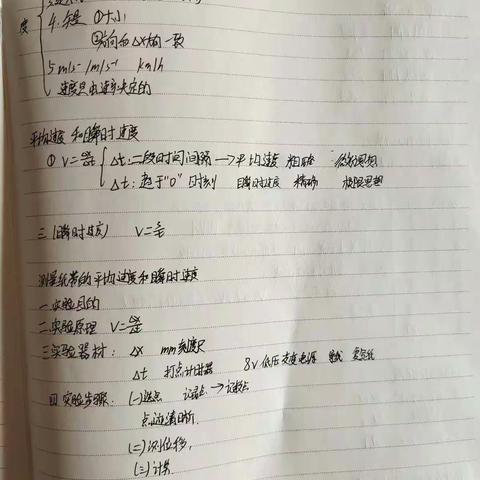 度
4.矢量 ①大小
②方向与Δx方向一致
5 m/s m/s⁻¹ km/h
速度只由速率决定的
平均速度和瞬时速度
① v=Δx/Δt Δt:一段时间间隔→平均速度 粗略
Δt:趋于"0" 时刻 瞬时速度 精确 极限思想
三(瞬时速度) v=
测量纸带的平均速度和瞬时速度
一.实验目的
二.实验原理 v=Δx/Δt
三.实验器材: Δx mm刻度尺
Δt 打点计时器 8v低压交流电源 复写纸
四.实验步骤: (一)选点 记录点→计数点
点迹清晰.
(二)测位移,
(三)计算